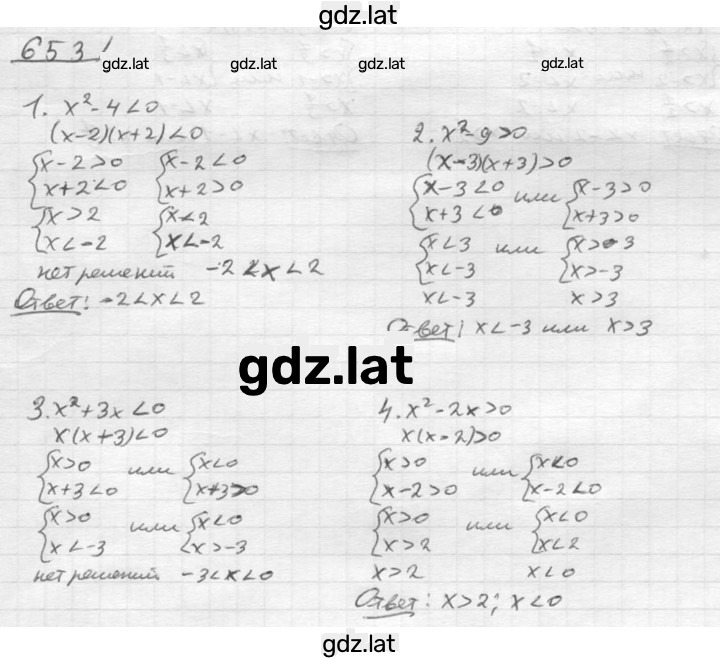 gdz.lat
653
gdz.lat gdz.lat gdz.lat gdz.lat
1. x²-4<0
(x-2)(x+2)<0
{x-2>0 {x-2<0
{x+2<0 {x+2>0
{x>2 {x<2
{x<-2 {x<-2
нет решений -2<x<2
Ответ: -2<x<2
2. x²-9>0
(x-3)(x+3)>0
{x-3<0 или {x-3>0
{x+3<0 {x+3>0
{x<3 или {x>3
{x<-3 {x>-3
x<-3 x>3
Ответ: x<-3 или x>3
gdz.lat
3. x²+3x<0
x(x+3)<0
{x>0 или {x<0
{x+3<0 {x+3>0
{x>0 или {x<0
{x<-3 {x>-3
нет решений -3<x<0
4. x²-2x>0
x(x-2)>0
{x>0 или {x<0
{x-2>0 {x-2<0
{x>0 или {x<0
{x>2 {x<2
x>2 x<0
Ответ: x>2; x<0
gdz.lat